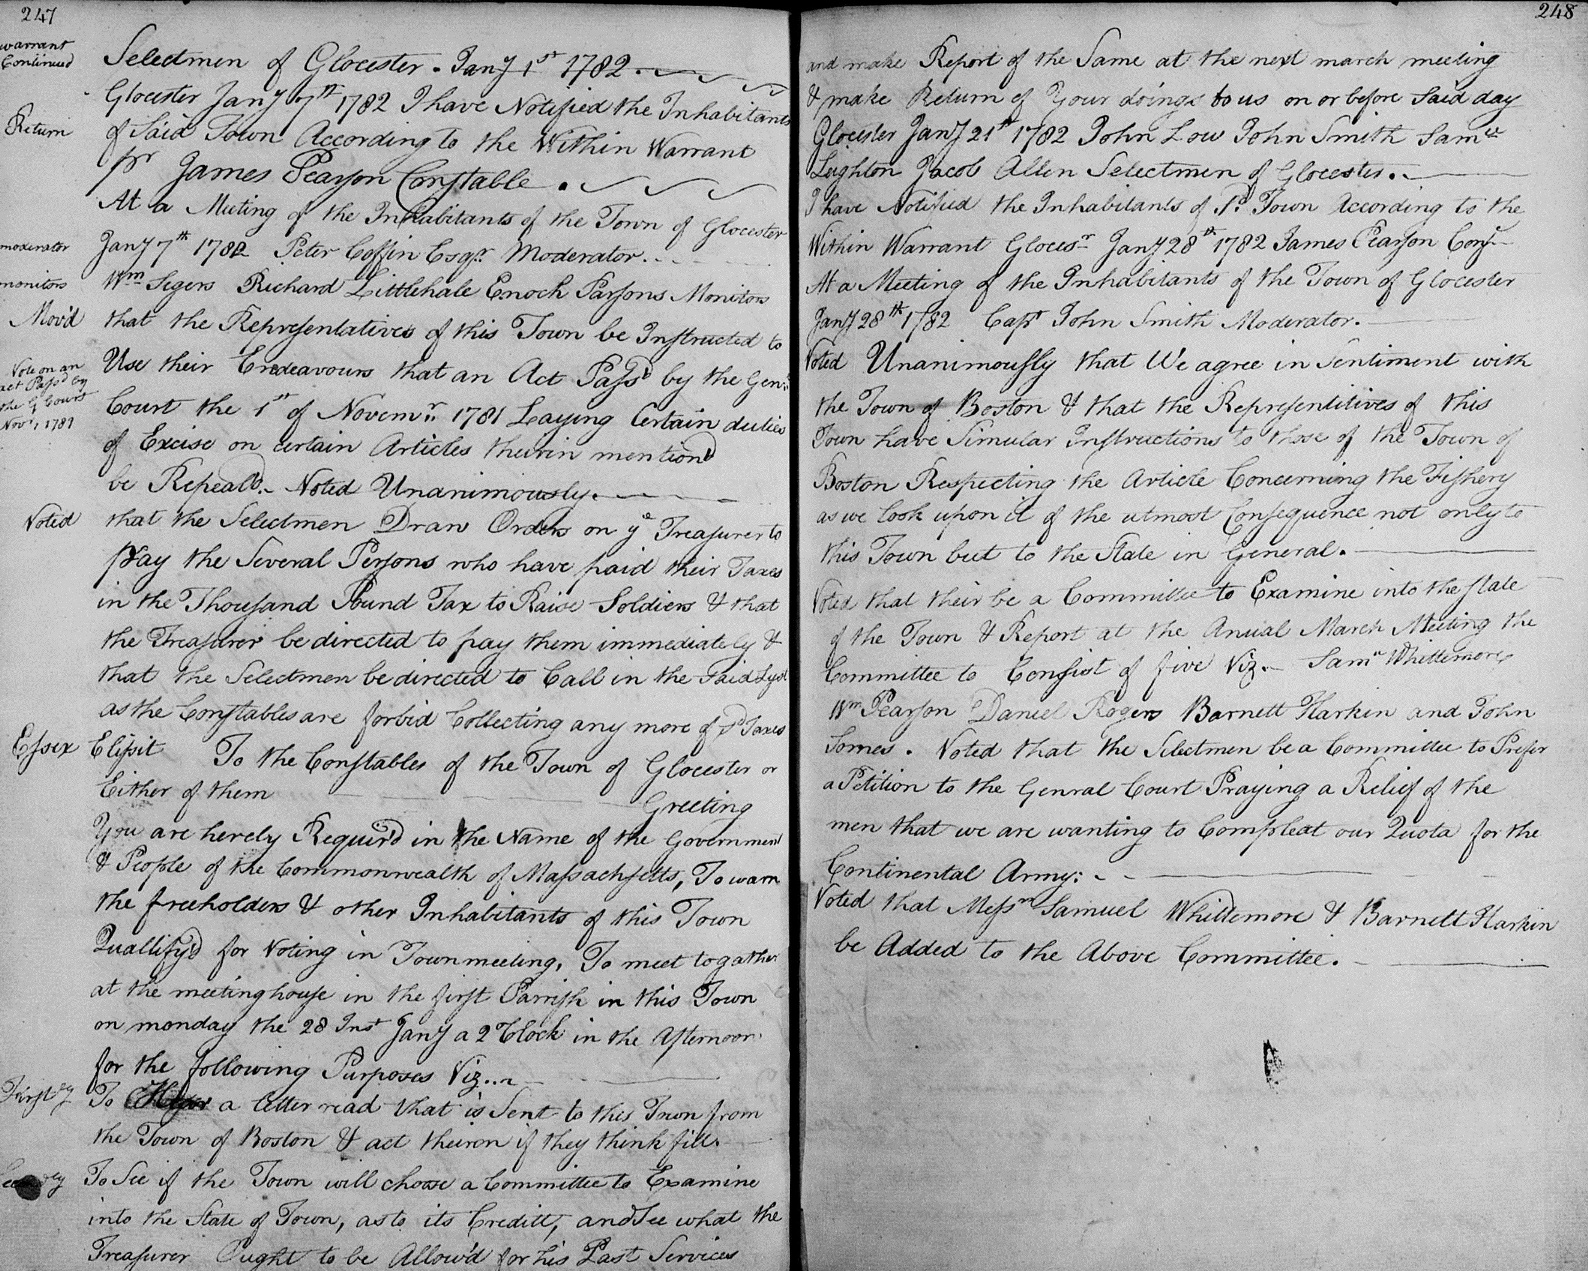 247
warrant
Continued
Selectmen of Glocester. Jany 1st 1782.
Glocester Jany 7th 1782 I have Notified the Inhabitants
Return
of Said Town According to the Within Warrant
pr James Pearson Constable.
At a Meeting of the Inhabitants of the Town of Glocester
moderator
Jany 7th 1782 Peter Coffin Esqr. Moderator.
monitors
Wm Segers Richard Littlehale Enoch Parsons Monitors
Mov'd
that the Representatives of this Town be Instructed to
Vote on an
act Pass'd by
the G Court
Novr, 1781
Use their Endeavours that an Act Pass'd by the Genrl
Court the 1st of Novemr. 1781 Laying Certain duties
of Excise on certain Articles therin mention'd
be Repeal'd. Voted Unanimously.
Voted
that the Selectmen Draw Orders on ye Treasurer to
pay the Several Persons who have paid their Taxes
in the Thousand Pound Tax to Raise Soldiers & that
the Treasurer be directed to pay them immediately &
that the Selectmen be directed to Call in the Said Lyst
as the Constables are forbid Collecting any more of sd Taxes
Essex
Elipsit To the Constables of the Town of Glocester or
Either of them Greeting
You are hereby Requir'd in the Name of the Government
& People of the Commonwealth of Massachsetts, To warn
the freeholders & other Inhabitants of this Town
Quallify'd for Voting in Townmeeting, To meet togather
at the meetinghouse in the first Parrish in this Town
on monday the 28 Inst Jany a 2 Clock in the Afternoon
for the following Purposes Viz..
Firstly
To a letter read that is Sent to this Town from
the Town of Boston & act theiron if they think fitt.
To See if the Town will choose a Committee to Examine
into the State of Town, as to its Creditt, and See what the
Treasurer Ought to be Allow'd for his Past Services
248
and make Report of the Same at the next march meeting
& make Return of Your doings to us on or before Said day
Glocester Jany 21st 1782 John Low John Smith Samll
Leighton Jacob Allen Selectmen of Glocester.
I have Notified the Inhabitants of sd. Town According to the
Within Warrant Glocesr Jany 28th 1782 James Pearson Const
At a Meeting of the Inhabitants of the Town of Glocester
Jany 28th 1782 Capt John Smith Moderator.
Voted Unanimously that We agree in Sentiment with
the Town of Boston & that the Representitives of this
Town have Simular Instructions to those of the Town of
Boston Respecting the Article Concerning the Fishery
as we look upon it of the utmost Consequence not only to
this Town but to the State in General.
Voted that their be a Committee to Examine into the State
of the Town & Report at the Anual March Meeting the
Committee to Consist of five Viz. Saml Whittemore
Wm Pearson Daniel Rogers Barnett Harkin and John
Somes. Voted that the Selectmen be a Committee to Prefer
a Petition to the Genral Court Praying a Relief of the
men that we are wanting to Compleat our Quota for the
Continental Army:
Voted that Messrs Samuel Whittemore & Barnett Harkin
be Added to the Above Committee.